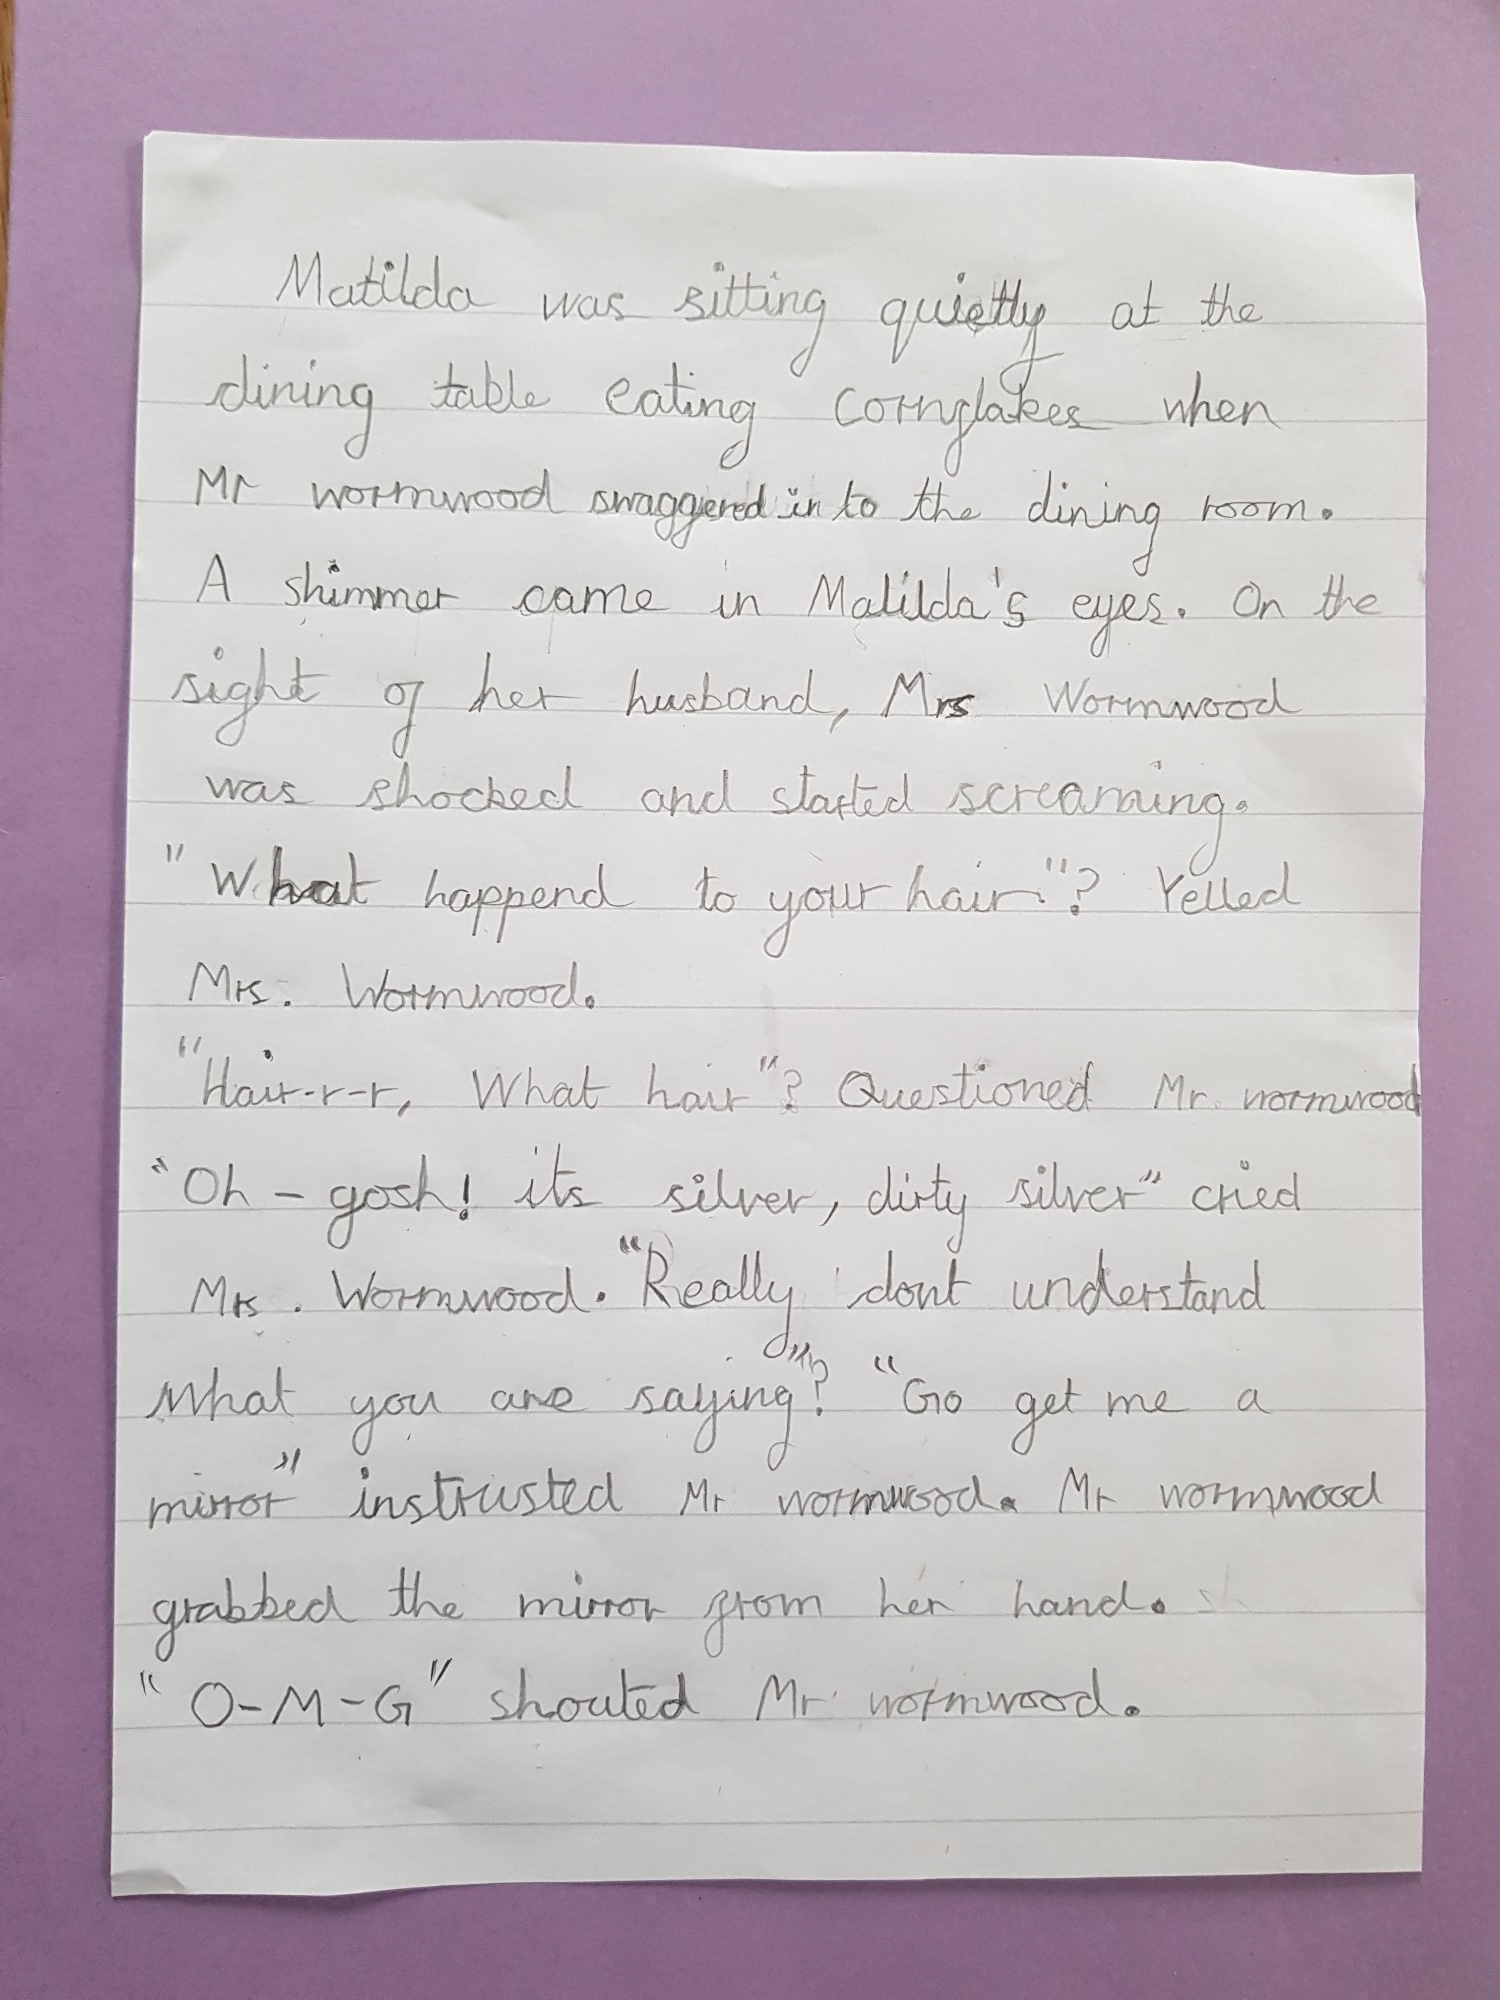 Matilda was sitting quietly at the
dining table eating cornflakes when
Mr wormwood swaggered in to the dining room.
A shimmer came in Matilda's eyes. On the
sight of her husband, Mrs Wormwood
was shocked and started screaming.
"What happend to your hair"? Yelled
Mrs. Wormwood.
"Hair-r-r, What hair"? Questioned Mr. wormwood
"Oh - gosh! its silver, dirty silver" cried
Mrs. Wormwood. "Really dont understand
what you are saying"? "Go get me a
mirror" instrusted Mr wormwood. Mr wormwood
grabbed the mirror from her hand.
"O-M-G" shouted Mr wormwood.